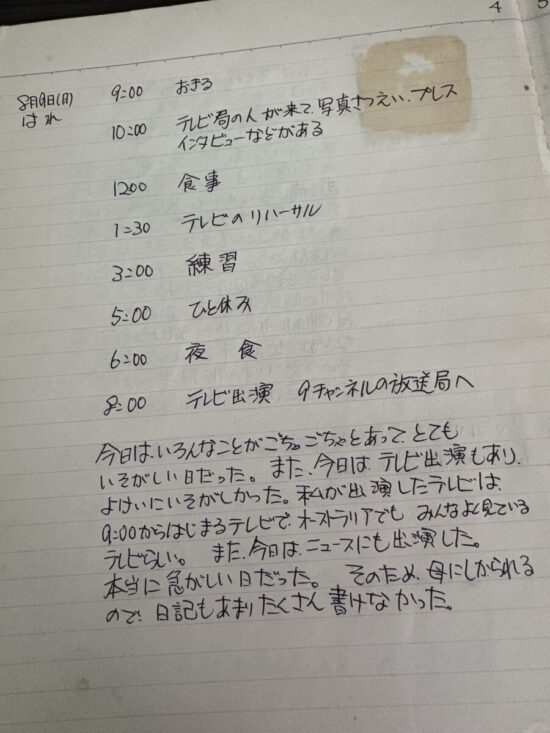 4 5
8月9日(月)
はれ
9:00 おきる
10:00 テレビ局の人が来て、写真さつえい、プレス
インタビューなどがある
1200 食事
1:30 テレビのリハーサル
3:00 練習
5:00 ひと休み
6:00 夜食
8:00 テレビ出演 9チャンネルの放送局へ
今日は、いろんなことがごちゃごちゃとあって、とても
いそがしい日だった。また、今日は、テレビ出演もあり、
よけいにいそがしかった。私が出演したテレビは、
9:00からはじまるテレビで、オーストラリアでもみんなよく見ている
テレビらしい。また、今日は、ニュースにも出演した。
本当に急がしい日だった。そのため、母にしかられる
ので、日記もあまりたくさん書けなかった。